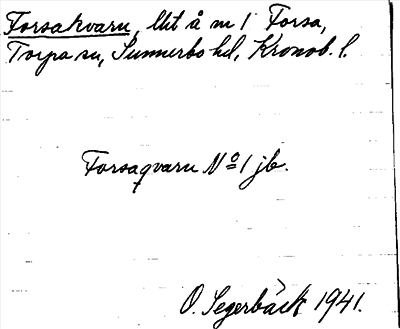 Forsakvarn, lht å nr 1 Forsa,
Torpa sn, Sunnerbo hd, Kronob. l.
Forsaqvarn No 1 jb.
O. Segerbäck 1941.